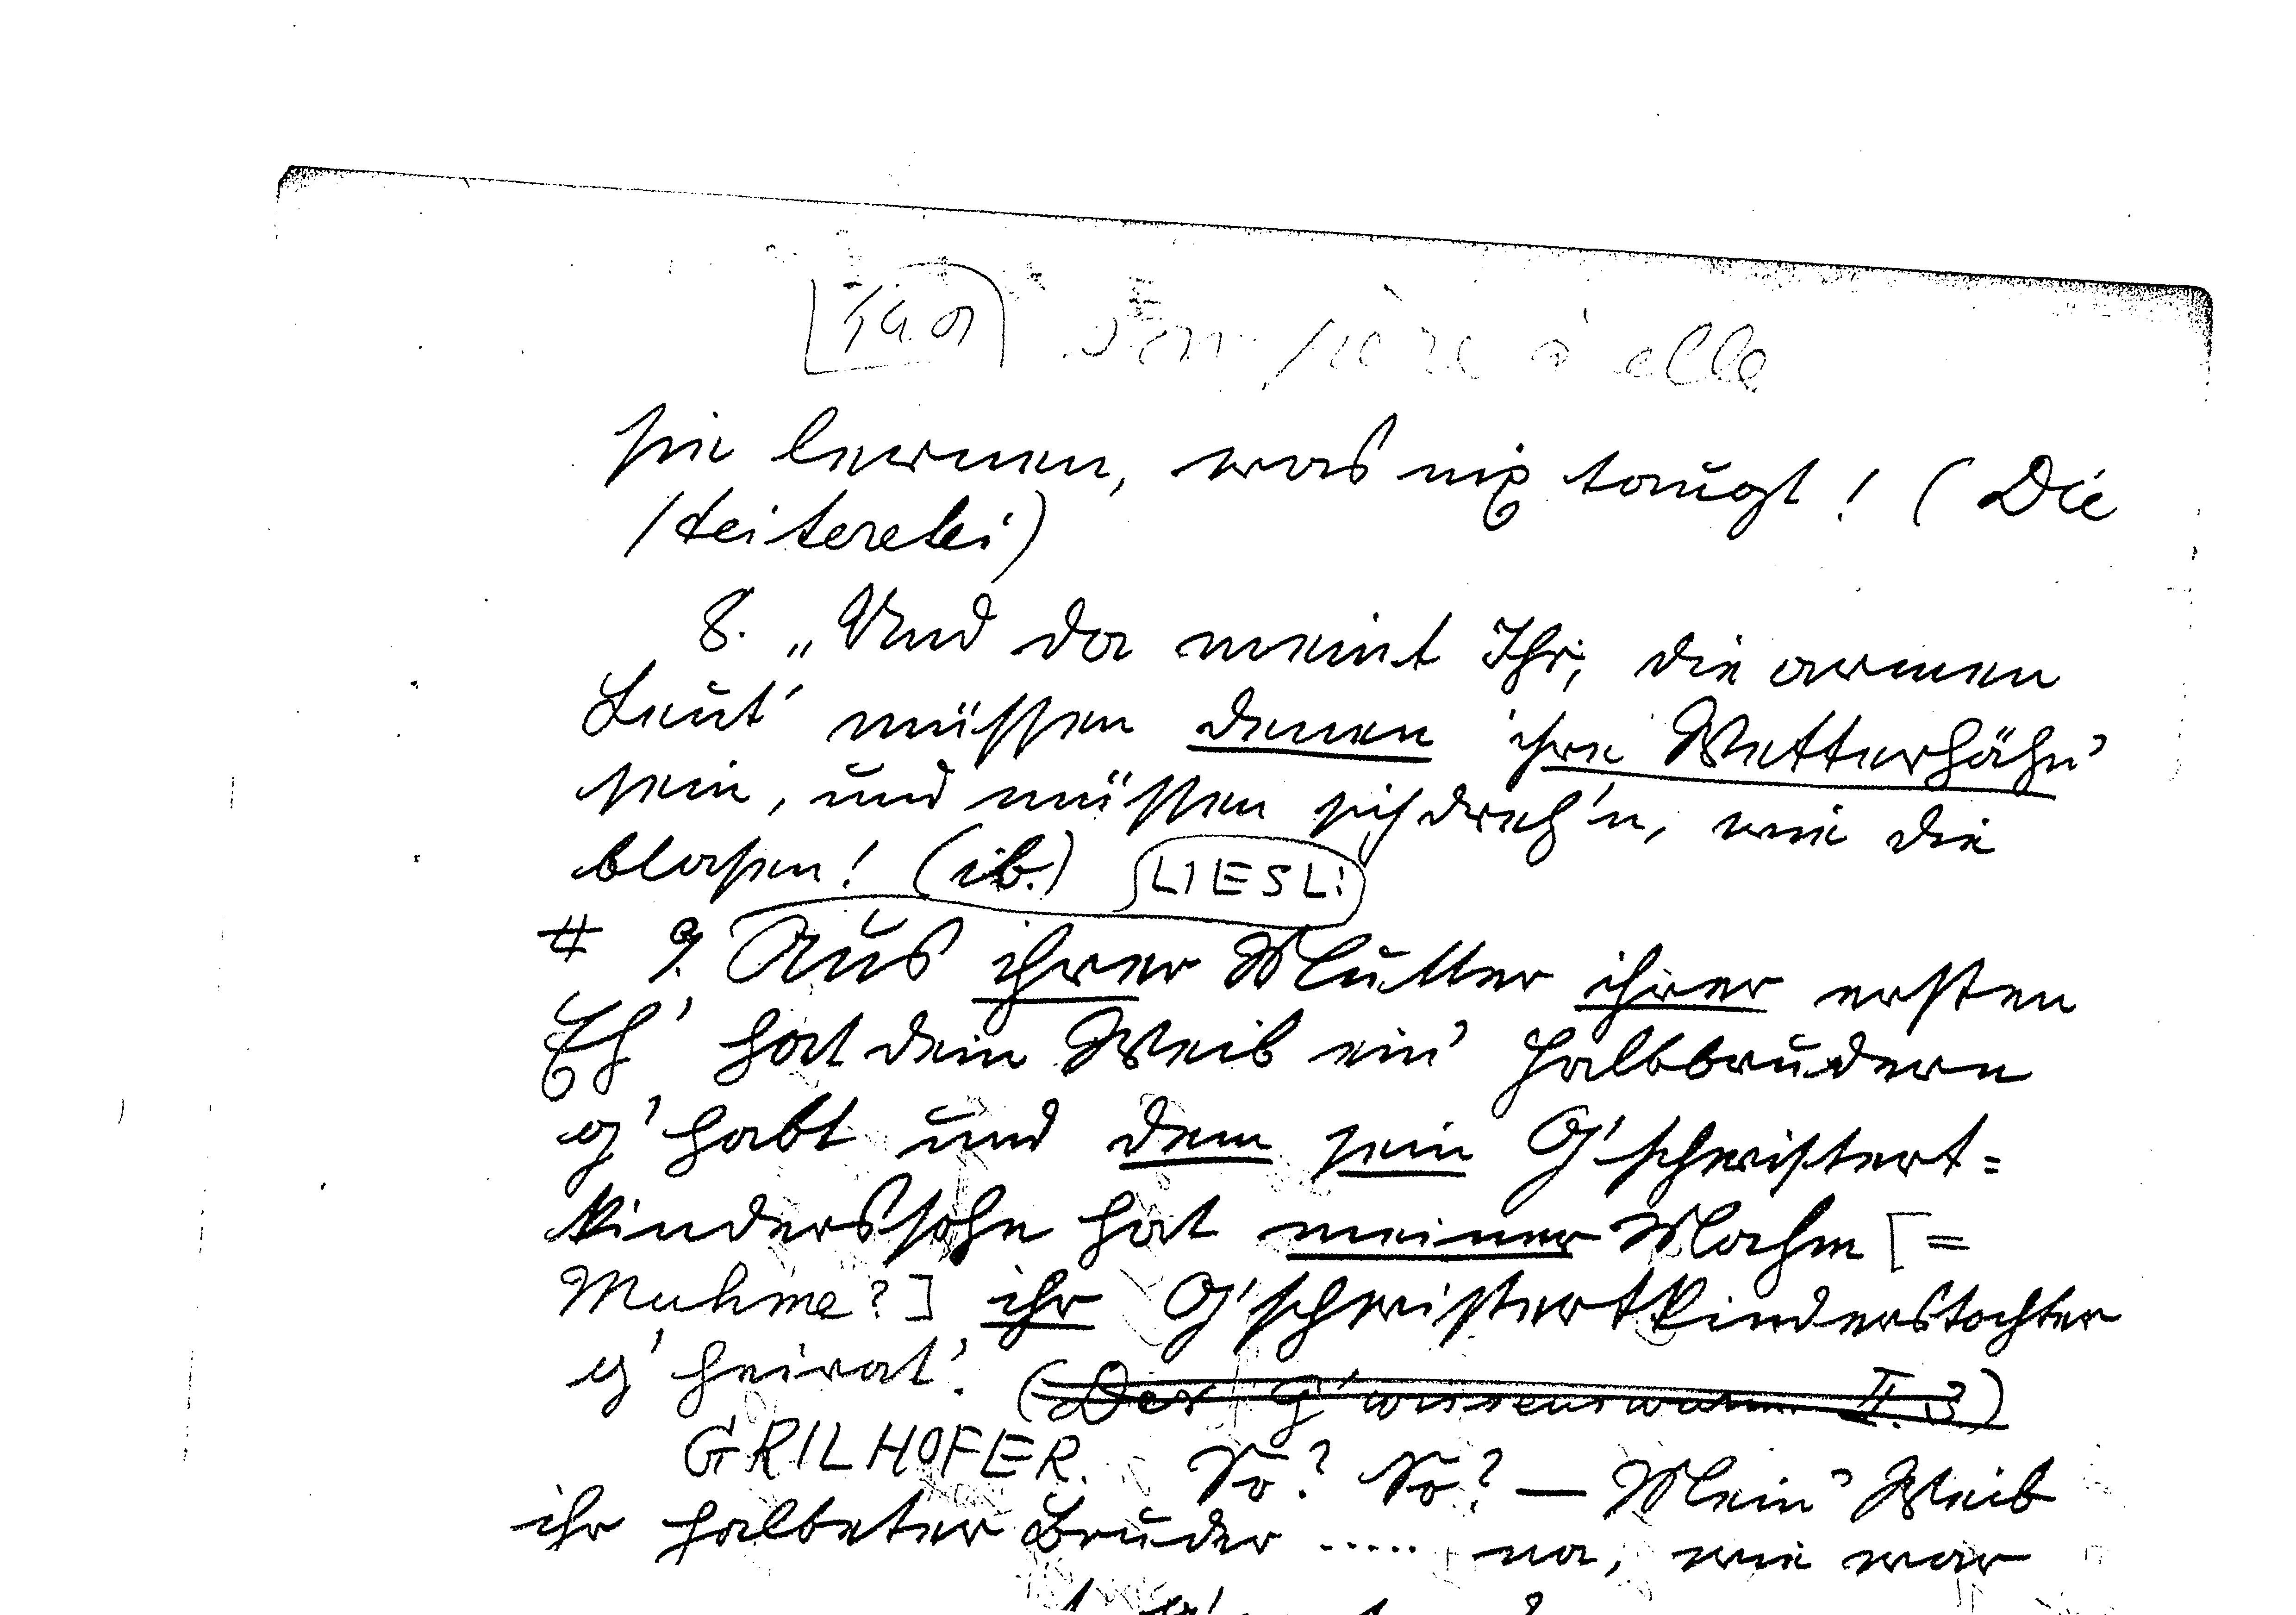 son père à elle
sie lernen, was nix taugt! (Die
8. „Und da meint Ihr, die armen
Leut' müssen denen ihre Wetterhähn'
sein, und müssen sich dreh'n, wie die
blasen! (ib.) LIESL:
# 9. Aus ihrer Mutter ihrer ersten
Eh' hat dein Weib ein' Halbbrudern
g'habt und dem sein G'schwistert=
kinderssohn hat meiner Mahm [=
Muhme?] ihr G'schwistertkinderstochter
g'heirat'. (Der G'wissenswurm II. 3)
GRILHOFER. So? So? — Mein' Weib
ihr halbeter Bruder ..... na, wie war